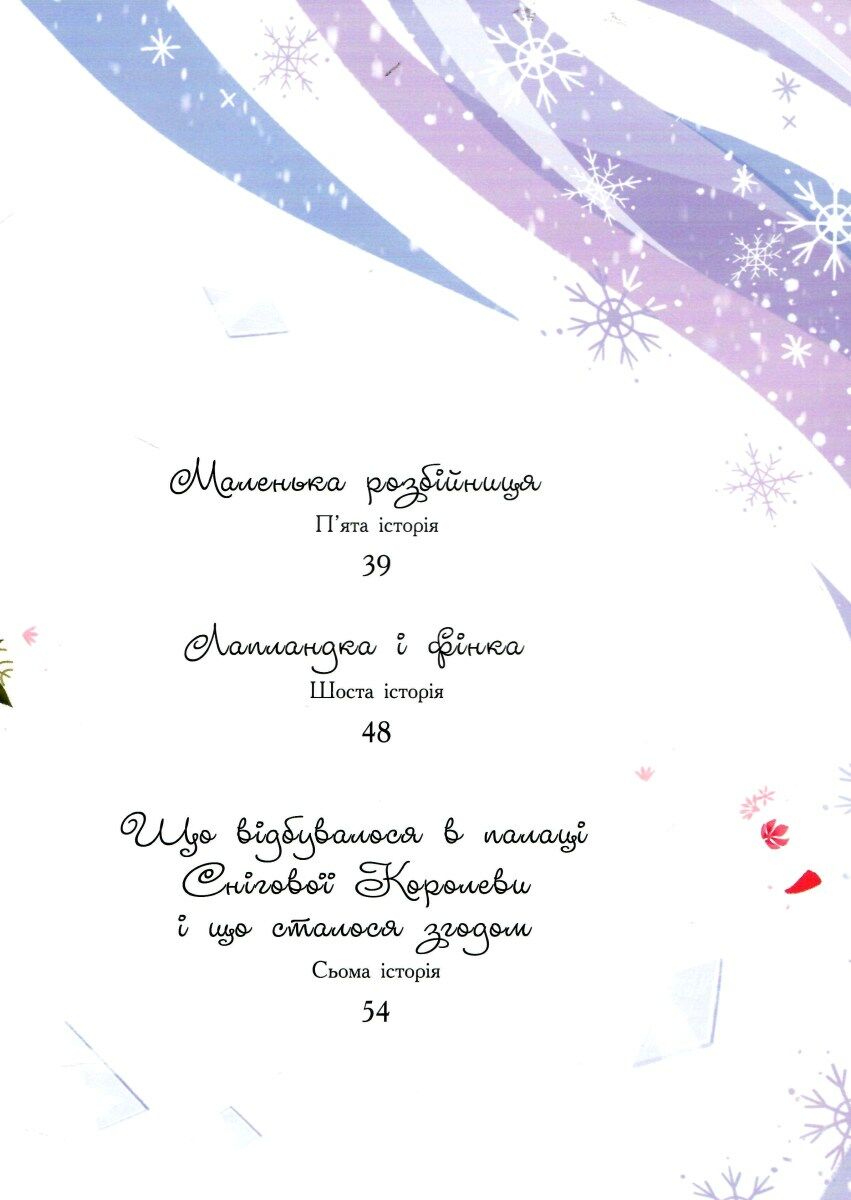 Маленька розбійниця
П'ята історія
39
Лапландка і фінка
Шоста історія
48
Що відбувалося в палаці
Снігової Королеви
і що сталося згодом
Сьома історія
54